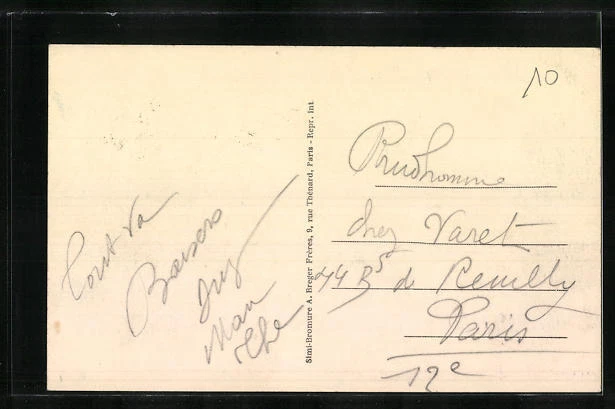 10
Tout va
Baisers
Man
Simi-Bromure A. Breger Frères, 9, rue Thénard, Paris - Repr. int
Prudhomme
chez Varet
44 Bd de Reuilly
Paris
12e